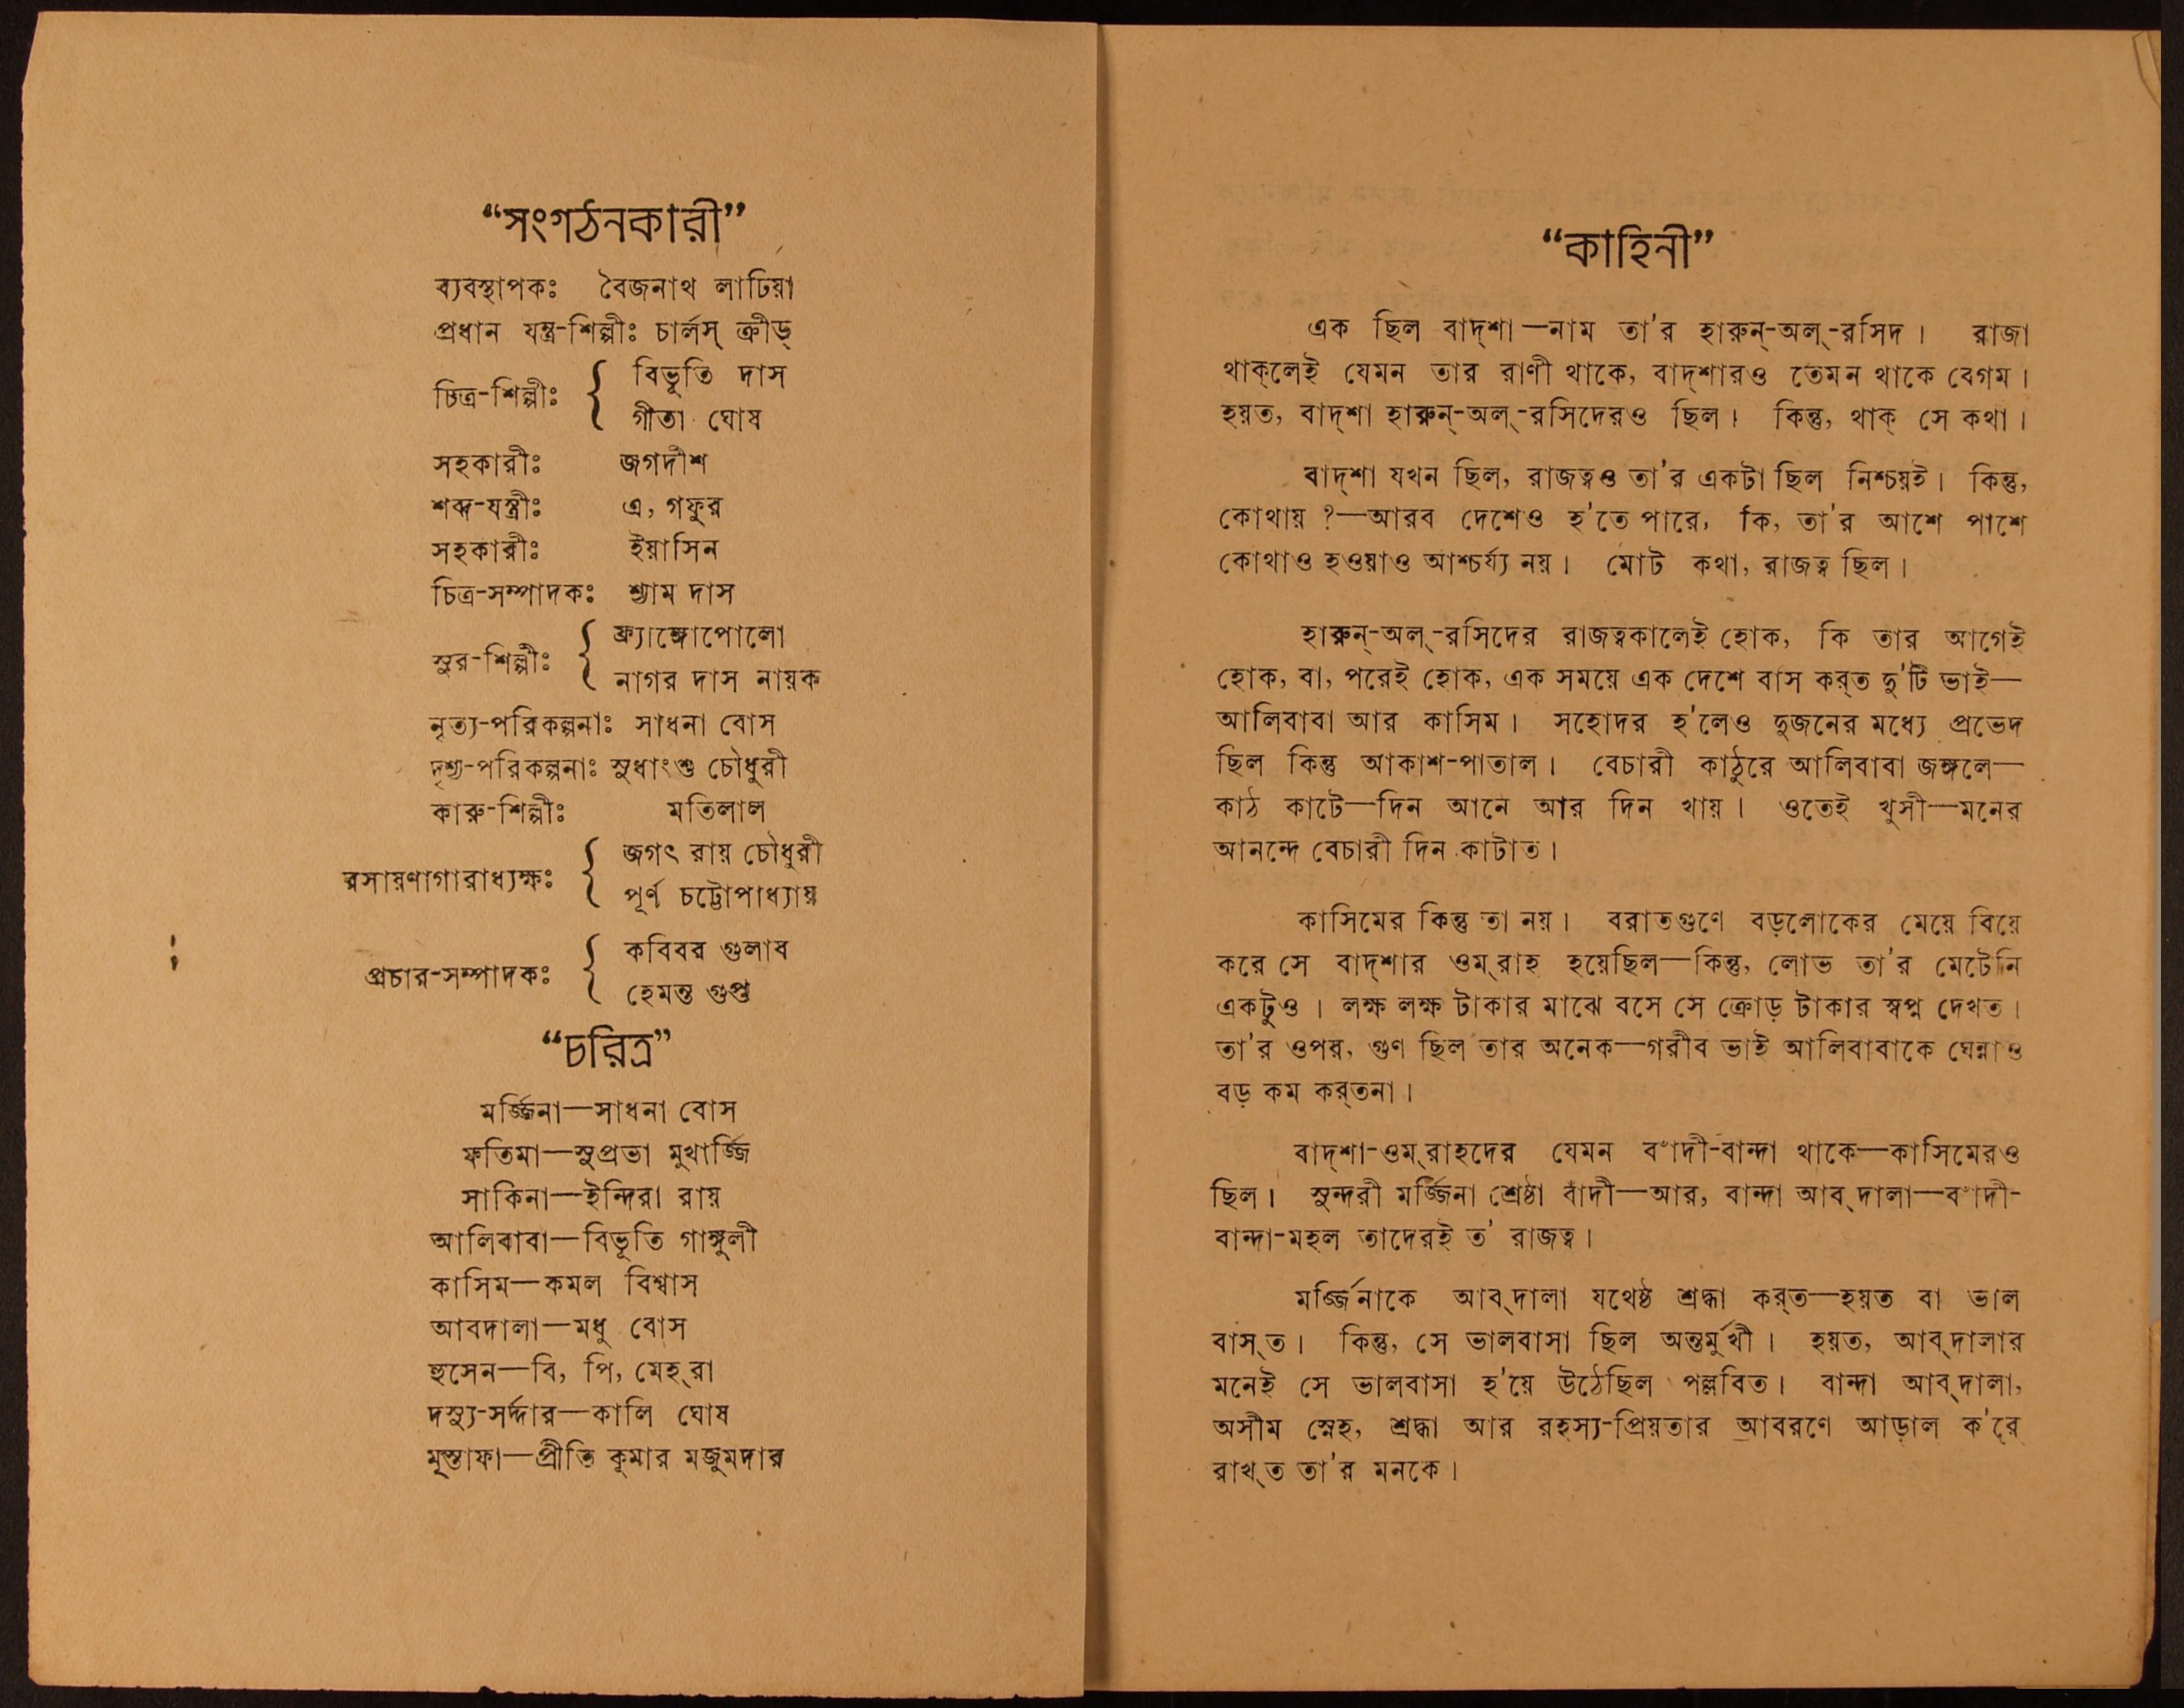 “সংগঠনকারী”
ব্যবস্থাপকঃ বৈজনাথ লাঢিয়া
প্রধান যন্ত্র-শিল্পীঃ চার্লস্ ক্রীড্
চিত্র-শিল্পীঃ { বিভূতি দাস
গীতা ঘোষ
সহকারীঃ জগদীশ
শব্দ-যন্ত্রীঃ এ, গফুর
সহকারীঃ ইয়াসিন
চিত্র-সম্পাদকঃ শ্যাম দাস
সুর-শিল্পীঃ { ফ্র্যাঙ্গোপোলো
নাগর দাস নায়ক
নৃত্য-পরিকল্পনাঃ সাধনা বোস
দৃশ্য-পরিকল্পনাঃ সুধাংশু চৌধুরী
কারু-শিল্পীঃ মতিলাল
রসায়ণাগারাধ্যক্ষঃ { জগৎ রায় চৌধুরী
পূর্ণ চট্টোপাধ্যায়
প্রচার-সম্পাদকঃ { কবিবর গুলাব
হেমন্ত গুপ্ত
“চরিত্র”
মর্জ্জিনা—সাধনা বোস
ফতিমা—সুপ্রভা মুখার্জ্জি
সাকিনা—ইন্দিরা রায়
আলিবাবা—বিভূতি গাঙ্গুলী
কাসিম—কমল বিশ্বাস
আবদালা—মধু বোস
হুসেন—বি, পি, মেহ্‌রা
দস্যু-সর্দ্দার—কালি ঘোষ
মূস্তাফা—প্রীতি কুমার মজুমদার
“কাহিনী”
এক ছিল বাদ্‌শা—নাম তা'র হারুন্-অল্-রসিদ। রাজা
থাক্‌লেই যেমন তার রাণী থাকে, বাদ্‌শারও তেমন থাকে বেগম।
হয়ত, বাদ্‌শা হারুন্-অল্-রসিদেরও ছিল। কিন্তু, থাক্ সে কথা।
বাদ্‌শা যখন ছিল, রাজত্বও তা'র একটা ছিল নিশ্চয়ই। কিন্তু,
কোথায় ?—আরব দেশেও হ'তে পারে, কি, তা'র আশে পাশে
কোথাও হওয়াও আশ্চর্য্য নয়। মোট কথা, রাজত্ব ছিল।
হারুন্-অল্-রসিদের রাজত্বকালেই হোক, কি তার আগেই
হোক, বা, পরেই হোক, এক সময়ে এক দেশে বাস কর্‌ত দু'টি ভাই—
আলিবাবা আর কাসিম। সহোদর হ'লেও দুজনের মধ্যে প্রভেদ
ছিল কিন্তু আকাশ-পাতাল। বেচারী কাঠুরে আলিবাবা জঙ্গলে—
কাঠ কাটে—দিন আনে আর দিন খায়। ওতেই খুসী—মনের
আনন্দে বেচারী দিন কাটাত।
কাসিমের কিন্তু তা নয়। বরাতগুণে বড়লোকের মেয়ে বিয়ে
করে সে বাদ্‌শার ওম্‌রাহ হয়েছিল—কিন্তু, লোভ তা'র মেটেনি
একটুও। লক্ষ লক্ষ টাকার মাঝে বসে সে ক্রোড় টাকার স্বপ্ন দেখত।
তা'র ওপর, গুণ ছিল তার অনেক—গরীব ভাই আলিবাবাকে ঘেন্নাও
বড় কম কর্‌তনা।
বাদ্‌শা-ওম্‌রাহদের যেমন বাঁদী-বান্দা থাকে—কাসিমেরও
ছিল। সুন্দরী মর্জ্জিনা শ্রেষ্ঠা বাঁদী—আর, বান্দা আব্‌দালা—বাঁদী-
বান্দা-মহল তাদেরই ত' রাজত্ব।
মর্জ্জিনাকে আব্‌দালা যথেষ্ঠ শ্রদ্ধা কর্‌ত—হয়ত বা ভাল
বাস্‌ত। কিন্তু, সে ভালবাসা ছিল অন্তর্মুখী। হয়ত, আব্‌দালার
মনেই সে ভালবাসা হ'য়ে উঠেছিল পল্লবিত। বান্দা আব্‌দালা,
অসীম স্নেহ, শ্রদ্ধা আর রহস্য-প্রিয়তার আবরণে আড়াল ক'রে
রাখ্‌ত তা'র মনকে।